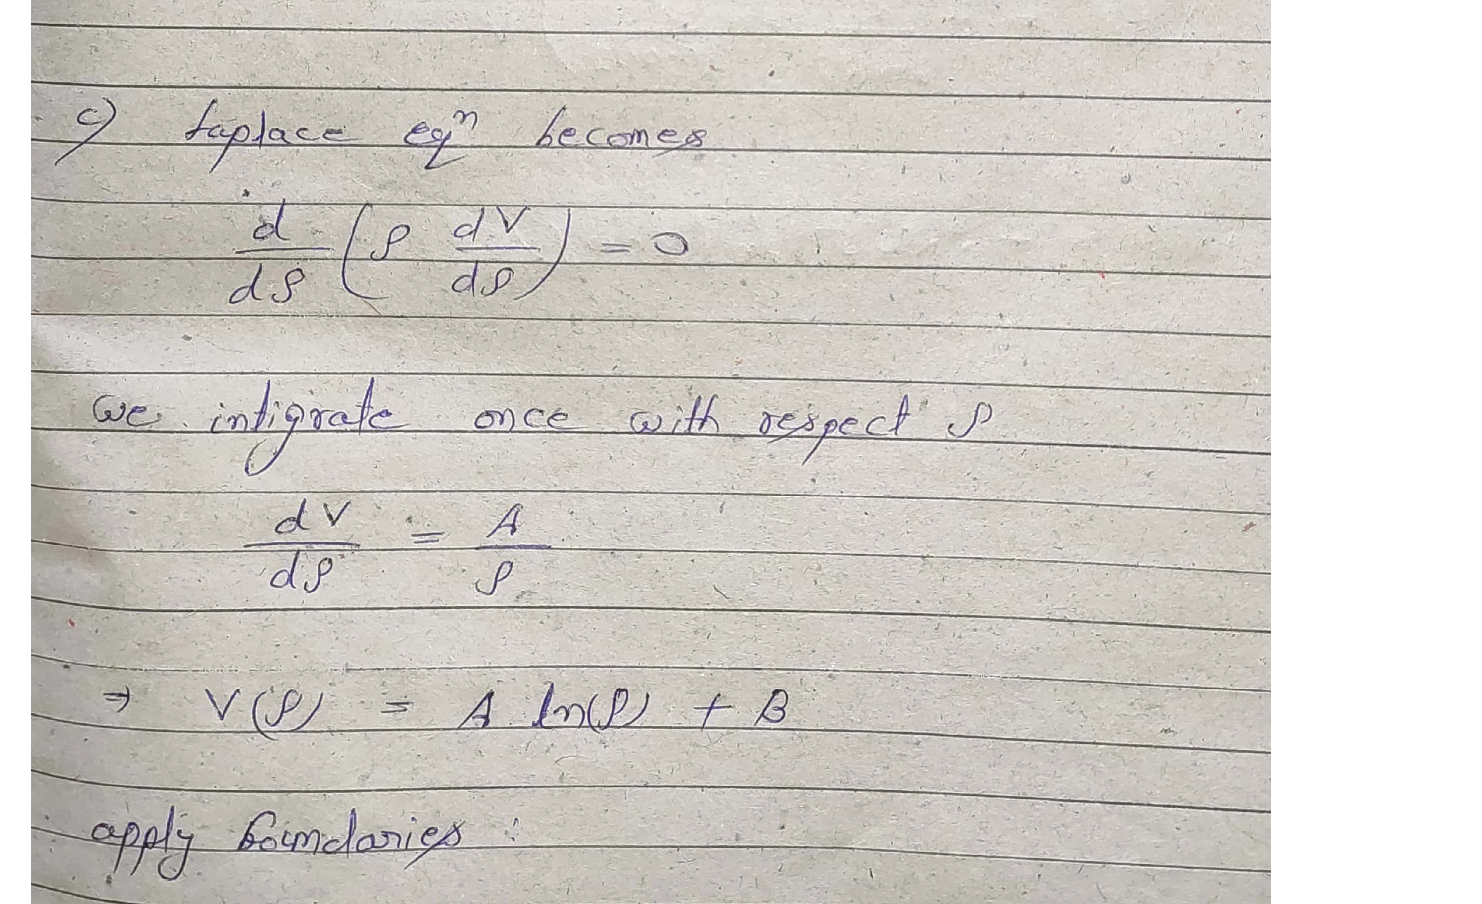 c) Laplace eqⁿ becomes
d/dρ (ρ dV/dρ) = 0
we intigrate once with respect ρ
dV/dρ = A/ρ
⇒ V(ρ) = A ln(ρ) + B
apply boundaries :